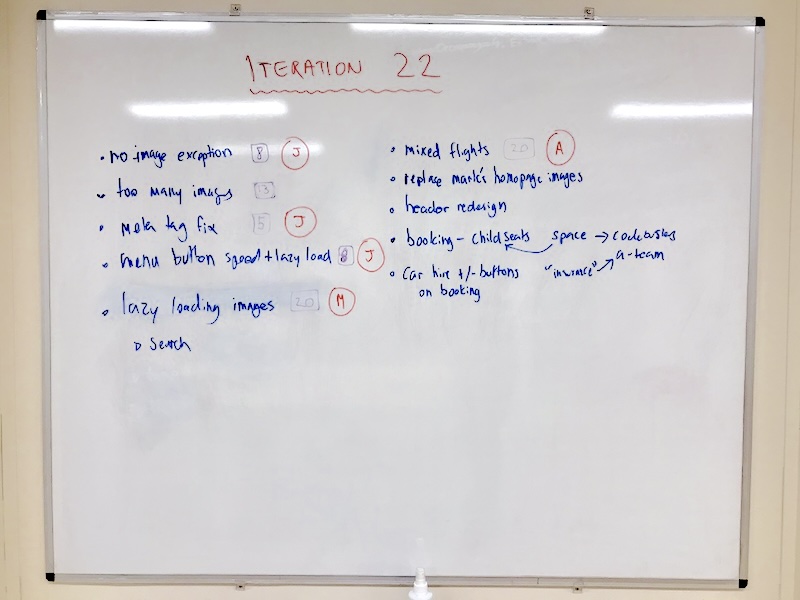 ITERATION 22
no image exception 8 J
too many images 13
meta tag fix 5 J
menu button speed + lazy load 8 J
lazy loading images 20 M
search
mixed flights 20 A
replace mark's homepage images
header redesign
booking - child seats space → codebusters
"insurance" a-team
car hire +/- buttons
on booking